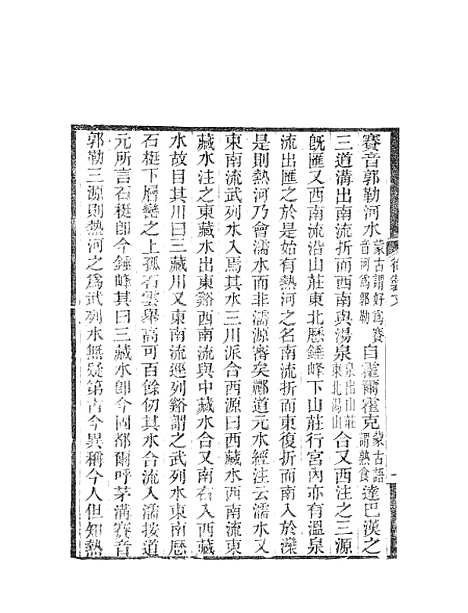 賽音郭勒河水蒙古謂好爲賽音河爲郭勒自霍爾霍克蒙古語謂熱食達巴漢之
三道溝出南流折而西南與湯泉泉出山莊東北湯山合又西注之三源
旣匯又西南流沿山莊東北歷錘峰下山莊行宮內亦有溫泉
流出匯之於是始有熱河之名南流折而東復折而南入於灤
是則熱河乃會濡水而非濡源審矣酈道元水經注云濡水又
東南流武列水入焉其水三川派合西源曰西藏水西南流東
藏水注之東藏水出東谿西南與中藏水合又南右入西藏
水故目其川曰三藏川又東南流逕列谿謂之武列水東南歷
石梃下層巒之上孤石雲舉高可百餘仞其水合流入濡按道
元所言石梃卽今錘峰其曰三藏水卽今固都爾呼茅溝賽音
郭勒三源則熱河之爲武列水無疑第古今異稱今人但知熱